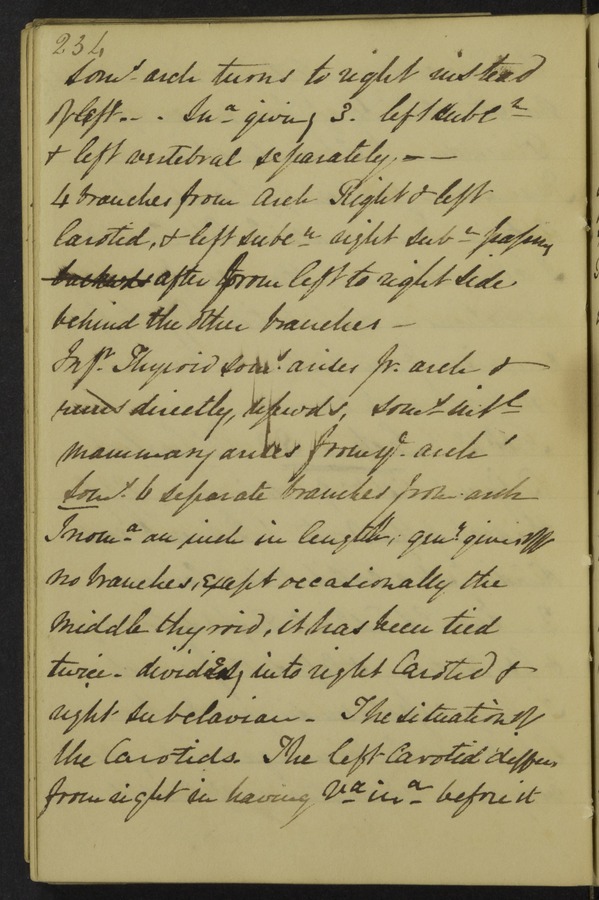 234
Somt arch turns to right instead
of left. - . Ina giving 3. left subcn
& left vertebral separately. — —
4 branches from arch Right & left
Carotid, & left subcn right subn passing
after from left to right side
behind the other branches —
Infr Thyroid somt arises fr. arch &
runs directly, upwds, somt intl
mammary arises from ye arch
Somt 6 separate branches from arch
Innoma an inch in length, genly gives off
no branches, except occasionally the
middle thyroid, it has been tied
twice - divides, into right Carotid &
right subclavian - The situation of
the Carotids. The left Carotid differs
from right in having Va ina before it